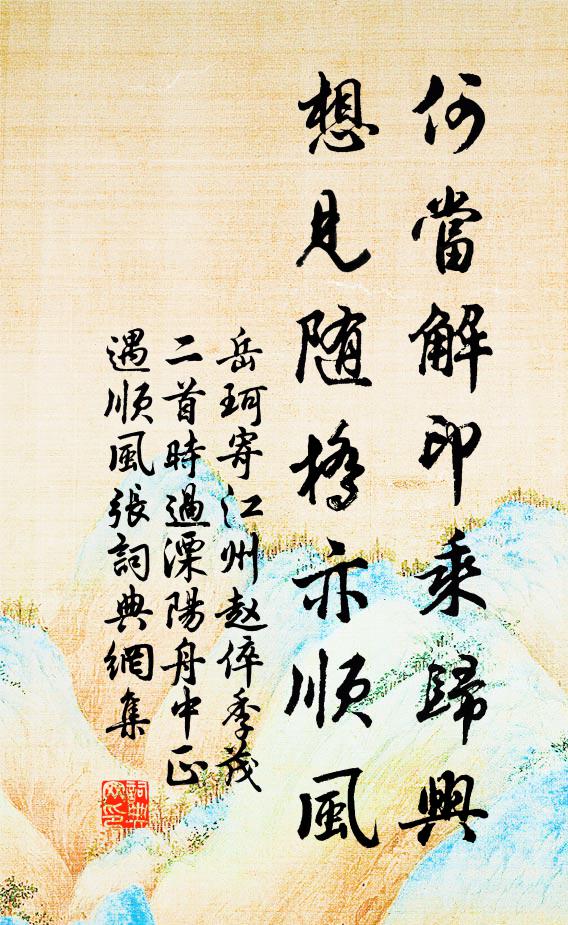 何當解印乘歸興
想見随橋亦順風
岳珂寄江州赵倅季茂
二首時過溧陽舟中正
遇順風張詞典網集
詞典
网印